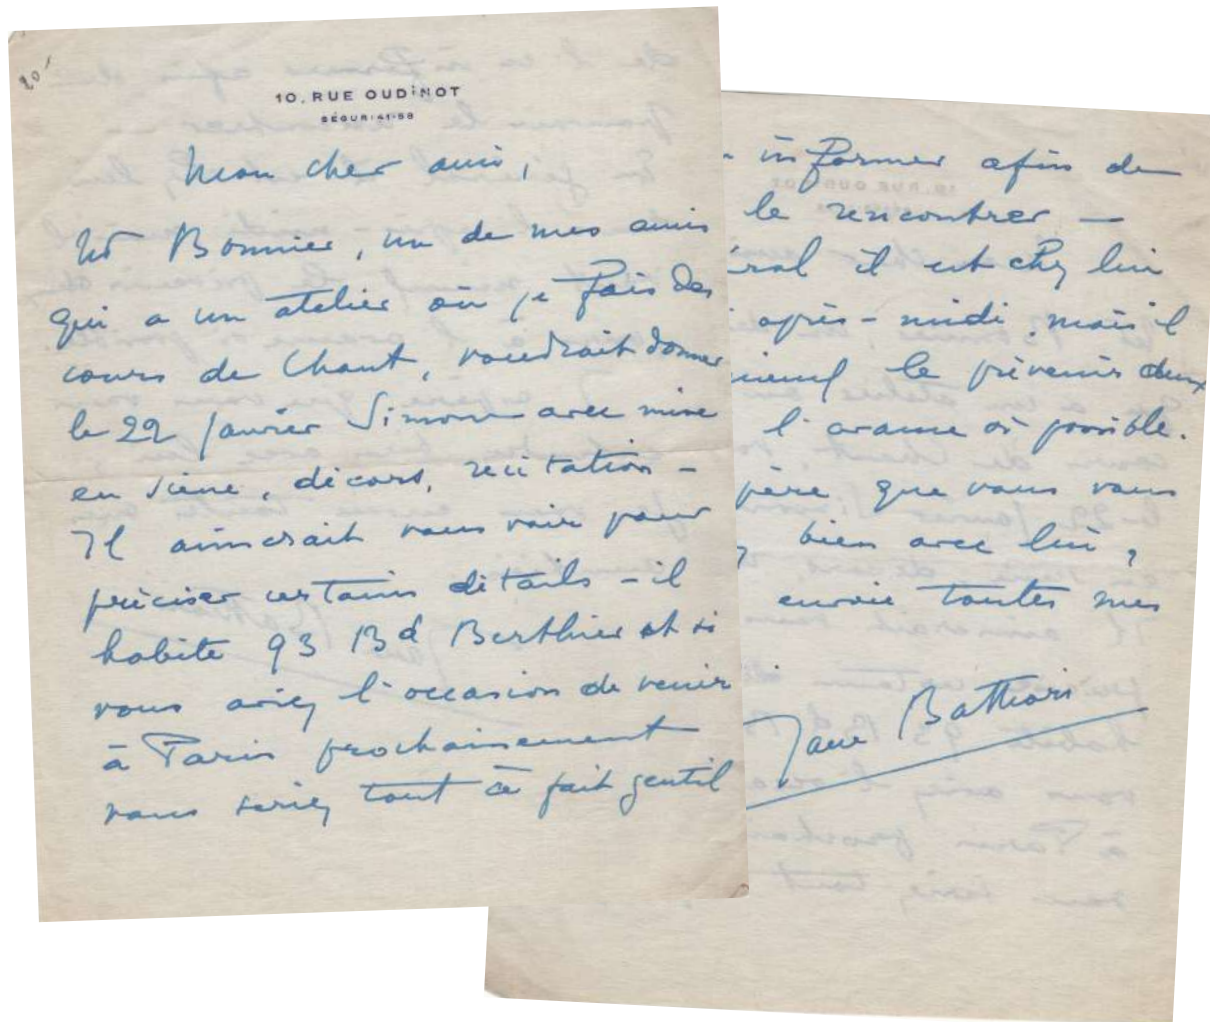 20
10, RUE OUDINOT
SÉGUR: 41-58
Mon cher ami,
Mr Bonnier, un de mes amis
qui a un atelier où je fais des
cours de Chant, voudrait donner
le 22 Janvier Simone avec mise
en scène, décors, récitation -
Il aimerait vous voir pour
préciser certains détails - il
habite 93 Bd Berthier et si
vous aviez l'occasion de venir
à Paris prochainement
vous seriez tout à fait gentil
informer afin de
le rencontrer -
il est chez lui
après-midi, mais il
le prévenir deux
l'avance si possible.
que vous vous
bien avec lui,
envoie toutes mes
Jane Bathori